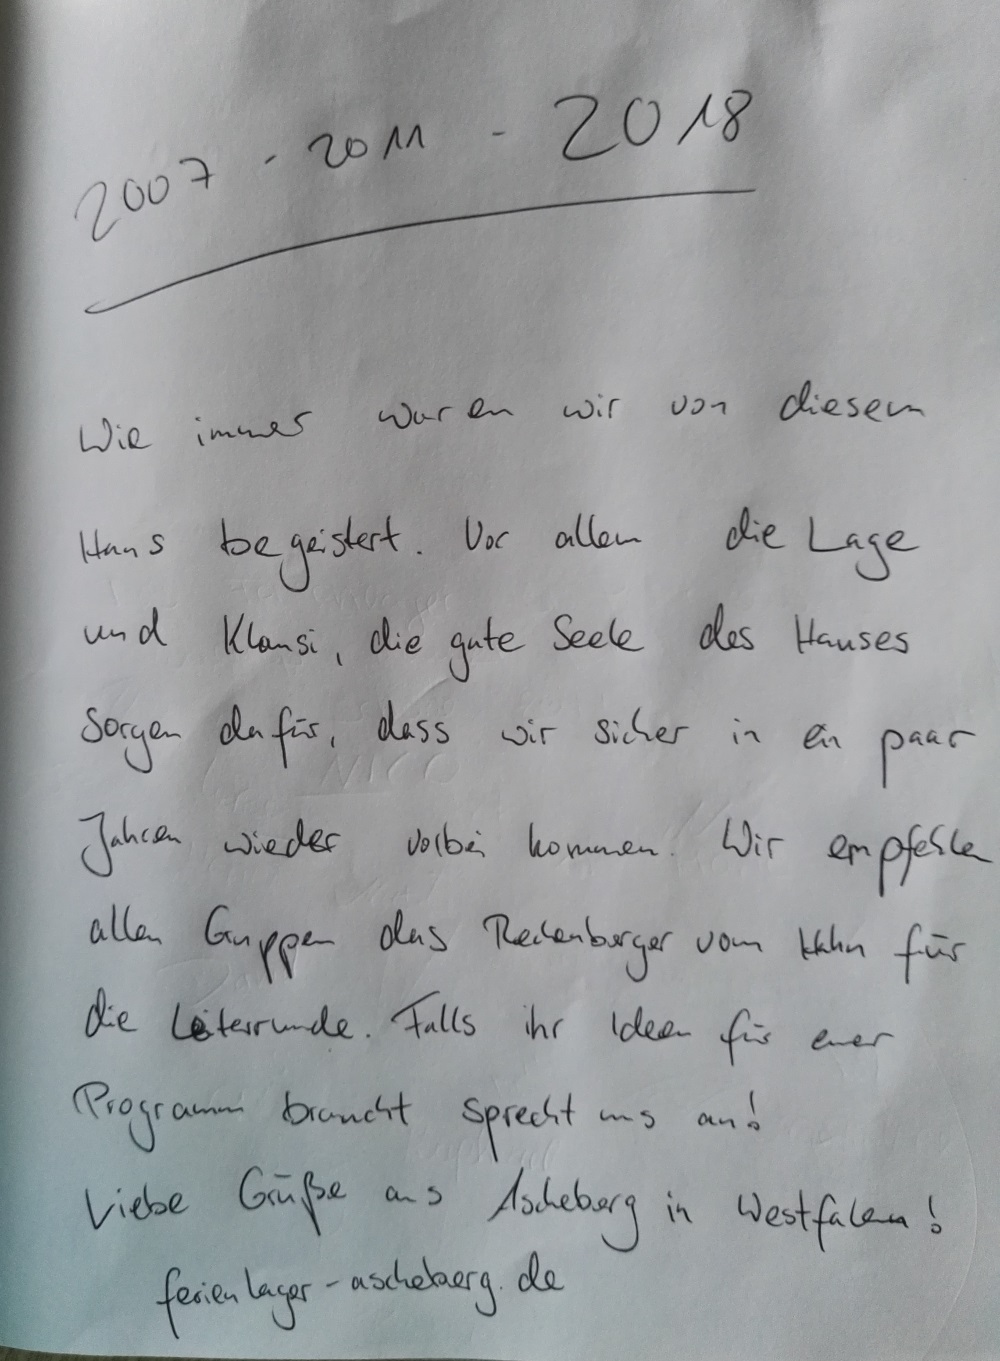 2007 - 2011 - 2018
Wie immer waren wir von diesem
Haus begeistert. Vor allem die Lage
und Klausi, die gute Seele des Hauses
Sorgen dafür, dass wir sicher in ein paar
Jahren wieder vorbei kommen. Wir empfehlen
allen Gruppen das Rechenberger vom Hahn für
die Leiterrunde. Falls ihr Ideen für euer
Programm braucht sprecht uns an!
Liebe Grüße aus Ascheberg in Westfalen!
ferienlager-ascheberg.de